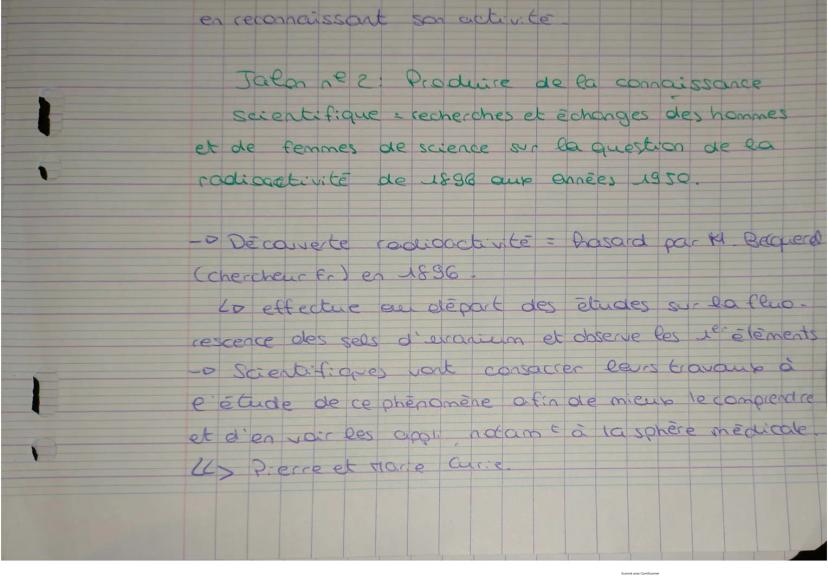 en reconnaissant son activité.
Jalon n° 2 : Produire de la connaissance
scientifique = recherches et échanges des hommes
et de femmes de science sur la question de la
radioactivité de 1896 aux années 1950.
-> Découverte radioactivité = hasard par M. Becquerel
(chercheur Fr) en 1896.
↳ effectue au départ des études sur la fluo-
rescence des sels d'uranium et observe les 1er éléments
-> Scientifiques vont consacrer leurs travaux à
l'étude de ce phénomène afin de mieux le comprendre
et d'en voir les appli, notamt à la sphère médicale.
↳> Pierre et Marie Curie.